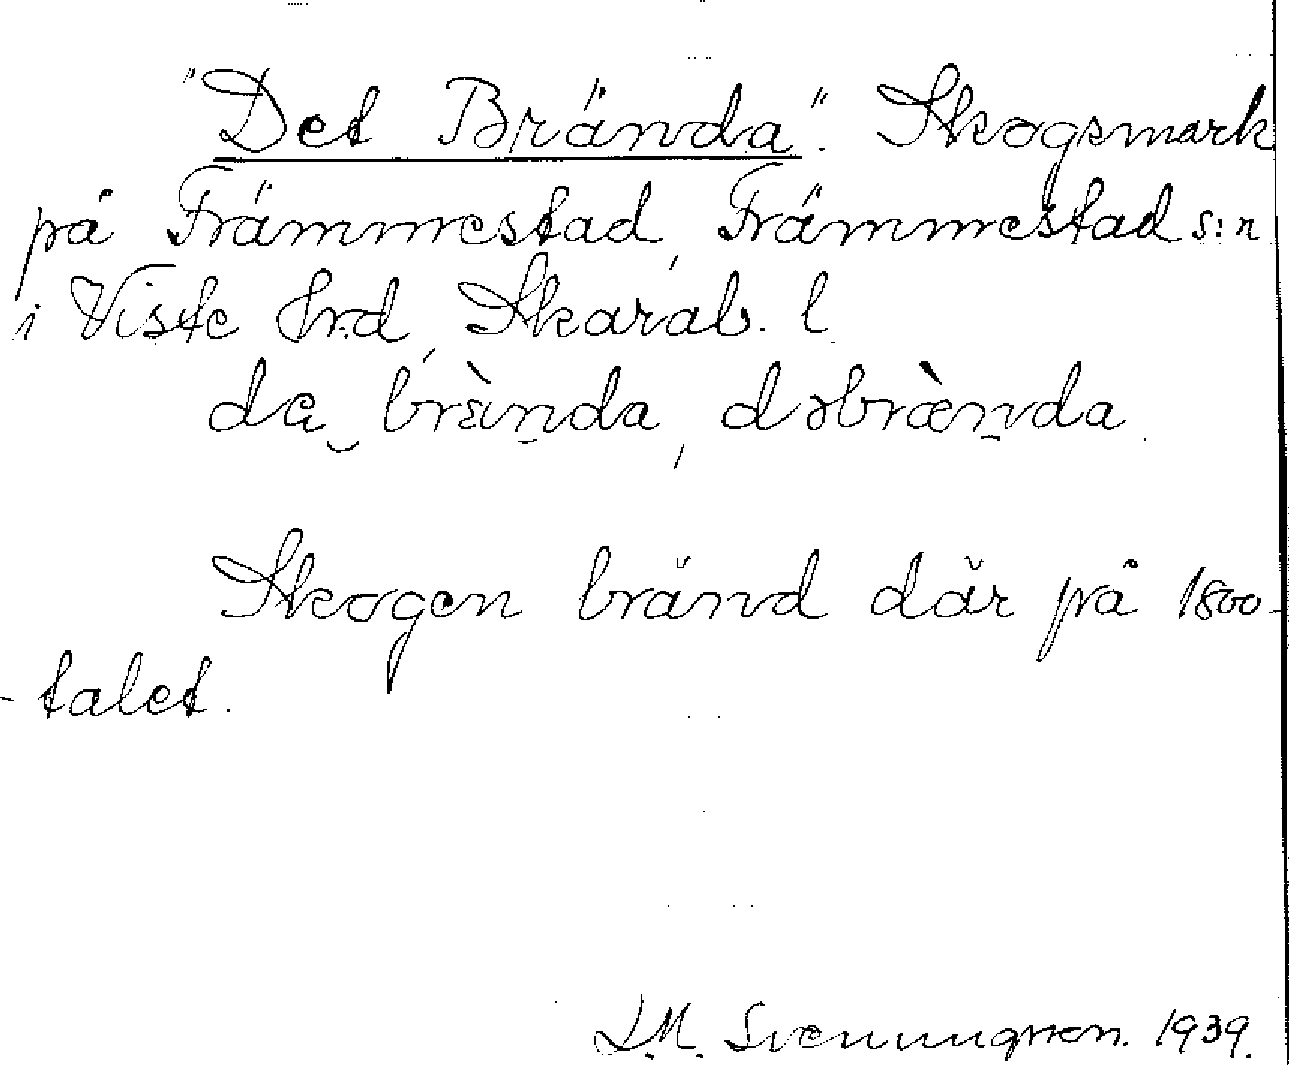 "Det Brända". Skogsmark
på Främmestad, Främmestad s:n
i Viste hrd, Skarab. l
da brä̀nda, dəbræ̀nda.
Skogen bränd där på 1800-
-talet.
I.M. Svennungsson. 1939.